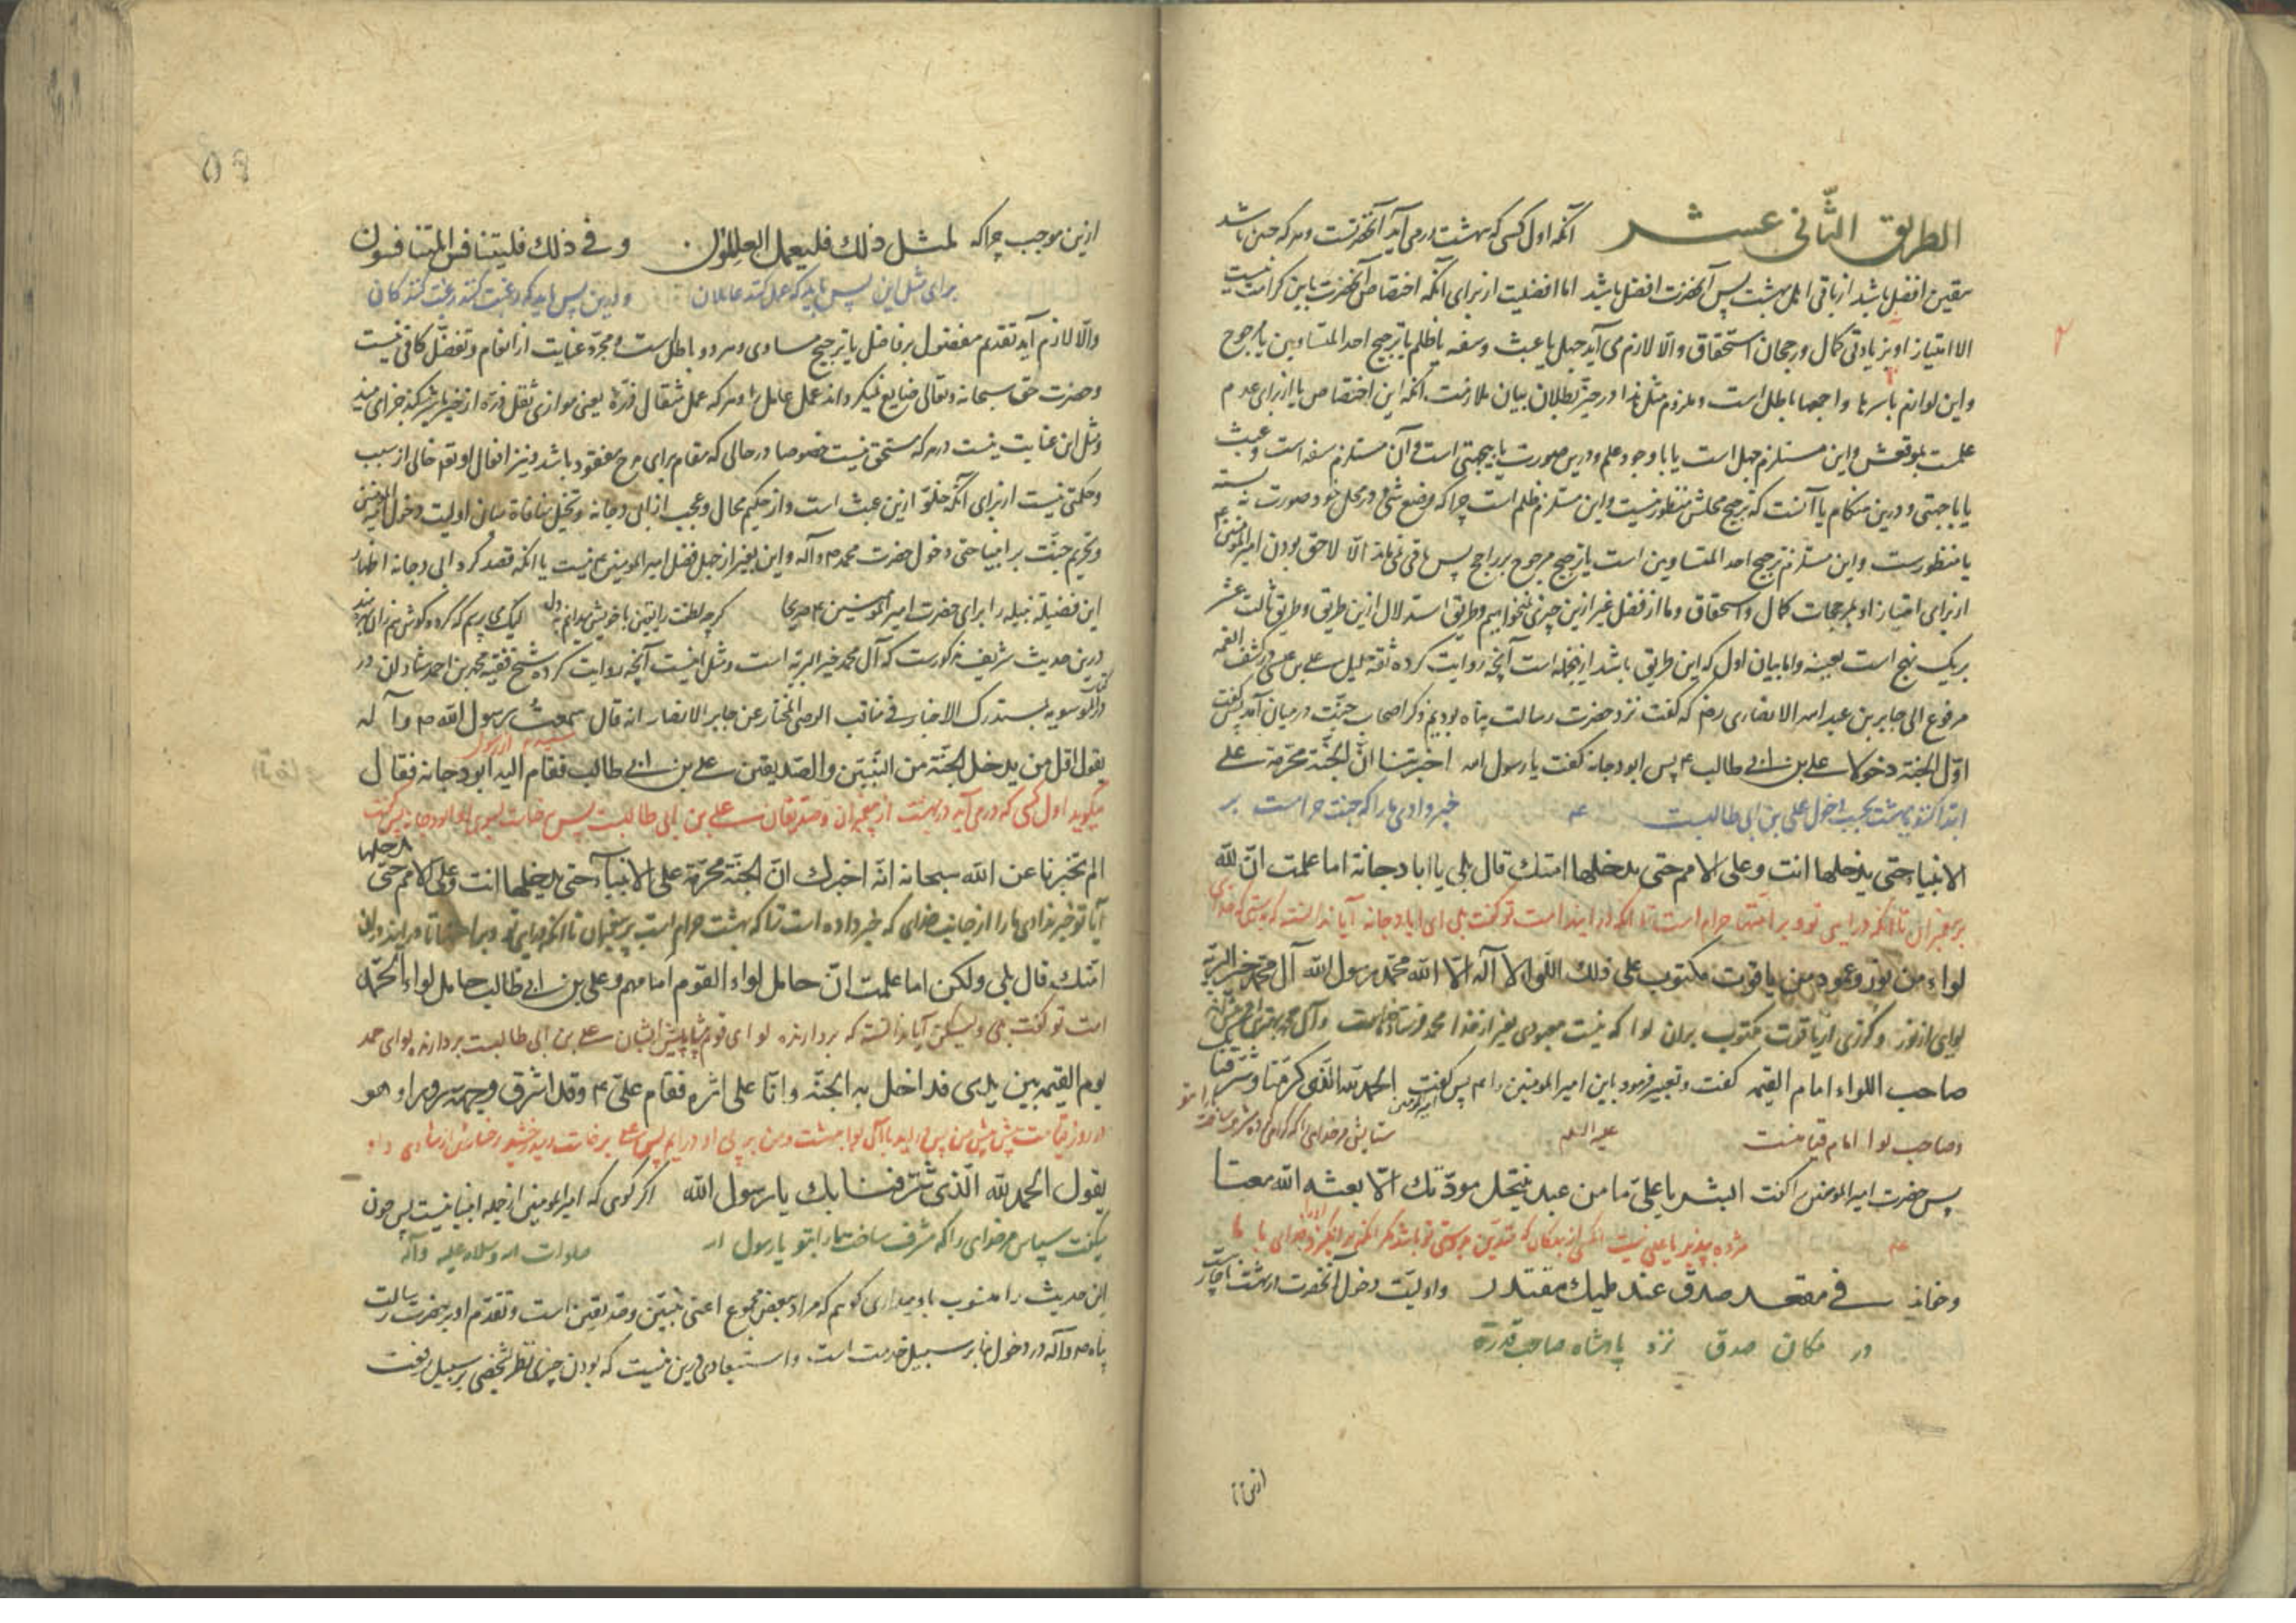 الطریق الثّانی عشر آنکه اول کسی که بهشت در می آید آنحضرتست و هر که چنین باشد
یقین افضل باشد از باقی اهل بهشت پس آنحضرت افضل باشد اما افضلیت از برای آنکه اختصاص آنحضرت باین کرامت نیست
الا امتیاز او بزیادتی کمال و رجحان استحقاق والّا لازم می آید جهل یا عبث و سفه یا ظلم یا ترجیح احد المتساویین یا مرجوح
و این لوازم باسرها و اجمعها باطل است و ملزوم مثل لذا در حیّز بطلان بیان ملازمت آنکه این اختصاص یا از برای عدم
علمست بموقعش و این مستلزم جهل است یا با وجود علم و درین صورت یا بیجهتی است و آن مستلزم سفه است و عبث
یا باجهتی و درین هنگام یا آنست که ترجیح محلش منظور نیست و این مستلزم ظلم است چرا که وضع شیء در محل خود صورت نه بسته
یا منظورست و این مستلزم ترجیح احد المتساویین است یا ترجیح مرجوح بر راجح پس باقی نمی ماند الّا لاحق بودن امیر المؤمنین ع
از برای امتیاز او بمرجحات کمال و استحقاق و ما از فضل غیر ازین چیزی نمیخواهیم و طریق استدلال ازین طریق و طریق ثالث عشر
بر یک نهج است بعینه و اما بیان اول که این طریق باشد از آنجمله است آنچه روایت کرده ثقه جلیل علی بن عیسی در کشف الغمه
مرفوع الی جابر بن عبد الله الانصاری رض که گفت نزد حضرت رسالت پناه بودیم و ذکر اصحاب جنّت در میان آمد پس گفت
اوّل الجنة دخولا علی بن ابی طالب ع پس ابو دجانه گفت یا رسول الله اخبرتنا انّ الجنّة محرّمة علی
ابتدا کننده بهشت بحسب دخول علی بن ابی طالبست ع خبر دادی ما را که جنت حرامست بر
الانبیاء حتی یدخلها انت و علی الامم حتی یدخلها امتک قال بلی یا ابا دجانة اما علمت انّ لله
پیغمبران تا آنکه در آیی تو و بر امتها حرام است تا آنکه در آیند امت تو گفت بلی ای ابا دجانه آیا ندانسته که بدرستی که خدای
لواء من نور و عمود من یاقوت مکتوب علی ذلک اللّواء لا اله الّا الله محمّد رسول الله آل محمّد خیر البریّة
لوای از نور و عمودی از یاقوت مکتوب بران لوا که نیست معبودی بغیر از خدا محمد فرستاده خداست و آل محمد
صاحب اللواء امام القیمه گفت و تعبیر فرمود باین امیر المومنین را ع پس گفت امیر المومنین الحمد لله الّذی کرّمنا و شرّفنا
و صاحب لوا امام قیامتست علیه السلم ستایش مر خدای را که گرامی کرد و مشرف ساخت ما را بتو
پس حضرت امیر المومنین را گفت ابشر یا علیّ ما من عبد ینتحل مودّتک الّا بعثه الله معنا
ع مژده بپذیر یا علی نیست از بندگان که
و خواند فی مقعد صدق عند ملیک مقتدر و اولیّت دخول آنحضرت در بهشت
در مکان صدق نزد پادشاه صاحب قدرة
ازین
ازین موجب چرا که لمثل ذلک فلیعمل العاملون و فی ذلک فلیتنافس المتنافسون
برای مثل این پس باید که عمل کنند عاملان و درین پس باید که رغبت کنند رغبت کنندگان
والّا لازم آید تقدیم مفضول بر فاضل یا ترجیح مساوی و هر دو باطل است و مجرّد عنایت از انعام و تفضّل کافی نیست
و حضرت حق سبحانه و تعالی ضایع نمیگرداند عمل عامل را و هر که عمل مثقال ذرّة یعنی موازی ثقل ذرّه از خیر یا شر کند جزای میبیند
و مثل این عنایت نیست در هر که مستحق نیست خصوصا در حالی که مقام برای مدح معقود باشد و نیز افعال او تعم خالی از سبب
و حکمتی نیست از برای آنکه خلوّ ازین عبث است و از حکیم محال و عجب از ابی دجانه و تخیّل منافاة میان اولیت دخول امیر المومنین
و تحریم جنّت بر انبیا حتی دخول حضرت محمد ص و آله و این بغیر از جهل فضل امیر المومنین ع نیست یا آنکه قصد کرد ابی دجانه اظهار
این فضیلة نبیله را برای حضرت امیر المومنین ع صریحا گرچه لطفت را یقین با خویش میدانم بدل لیک می پرسم که گردد گوش هم زان بهره مند
درین حدیث شریف مذکورست که آل محمد خیر البریّه است و مثل اینست آنچه روایت کرده شیخ فقیه محمد بن احمد شاذان در کتاب
بمستدرک الاخبار فی مناقب الوصی المختار عن جابر الانصار انه قال سمعت رسول الله ص و آله
شنیدم از رسول
یقول اوّل من یدخل الجنّة من النّبیّین و الصّدیقین علی بن ابی طالب فقام الیه ابو دجانه فقال
میگوید اول کسی که در می آید در بهشت از پیغمبران و صدیقان علی بن ابی طالبست پس برخاست بسوی او ابو دجانه پس گفت
الم تخبرنا عن الله سبحانه انّه اخبرک انّ الجنّة محرّمة علی الانبیاء حتّی تدخلها انت و علی الامم حتّی تدخلها
آیا تو خبر ندادی ما را از جانب خدای که خبر داده است ترا که بهشت حرام است بر پیغمبران تا آنکه در آیی تو و بر امتها تا در آیند دران
امّتک قال بلی ولکن اما علمت انّ حامل لواء القوم امامهم و علی بن ابی طالب حامل لواء الحمد
امت تو گفت بلی و لیکن آیا ندانسته که بردارنده لوای قوم پیشاپیش ایشان علی بن ابی طالبست بردارنده لوای حمد
یوم القیمه بین یدیی فداخل به الجنّة و انا علی اثره فقام علیّ ع و قد اشرق وجهه سرورا و هو
یقول الحمد لله الّذی شرّفنا بک یا رسول الله اگر گوی که امیر المومنین از جمله انبیا نیست پس چون
میگفت سپاس مر خدای را که مشرف ساخت ما را بتو یا رسول الله صلوات الله و سلامه علیه و آله
این حدیث را منسوب باو میداری گویم که مراد بعض مجموع اعنی نبیّین و صدیقین است و تقدّم او بر حضرت رسالت
پناه ص و آله در دخول بنا بر سبیل خدمت است و استبعادی درین نیست که بودن چیزی بنظر شخصی بر سبیل رفعت